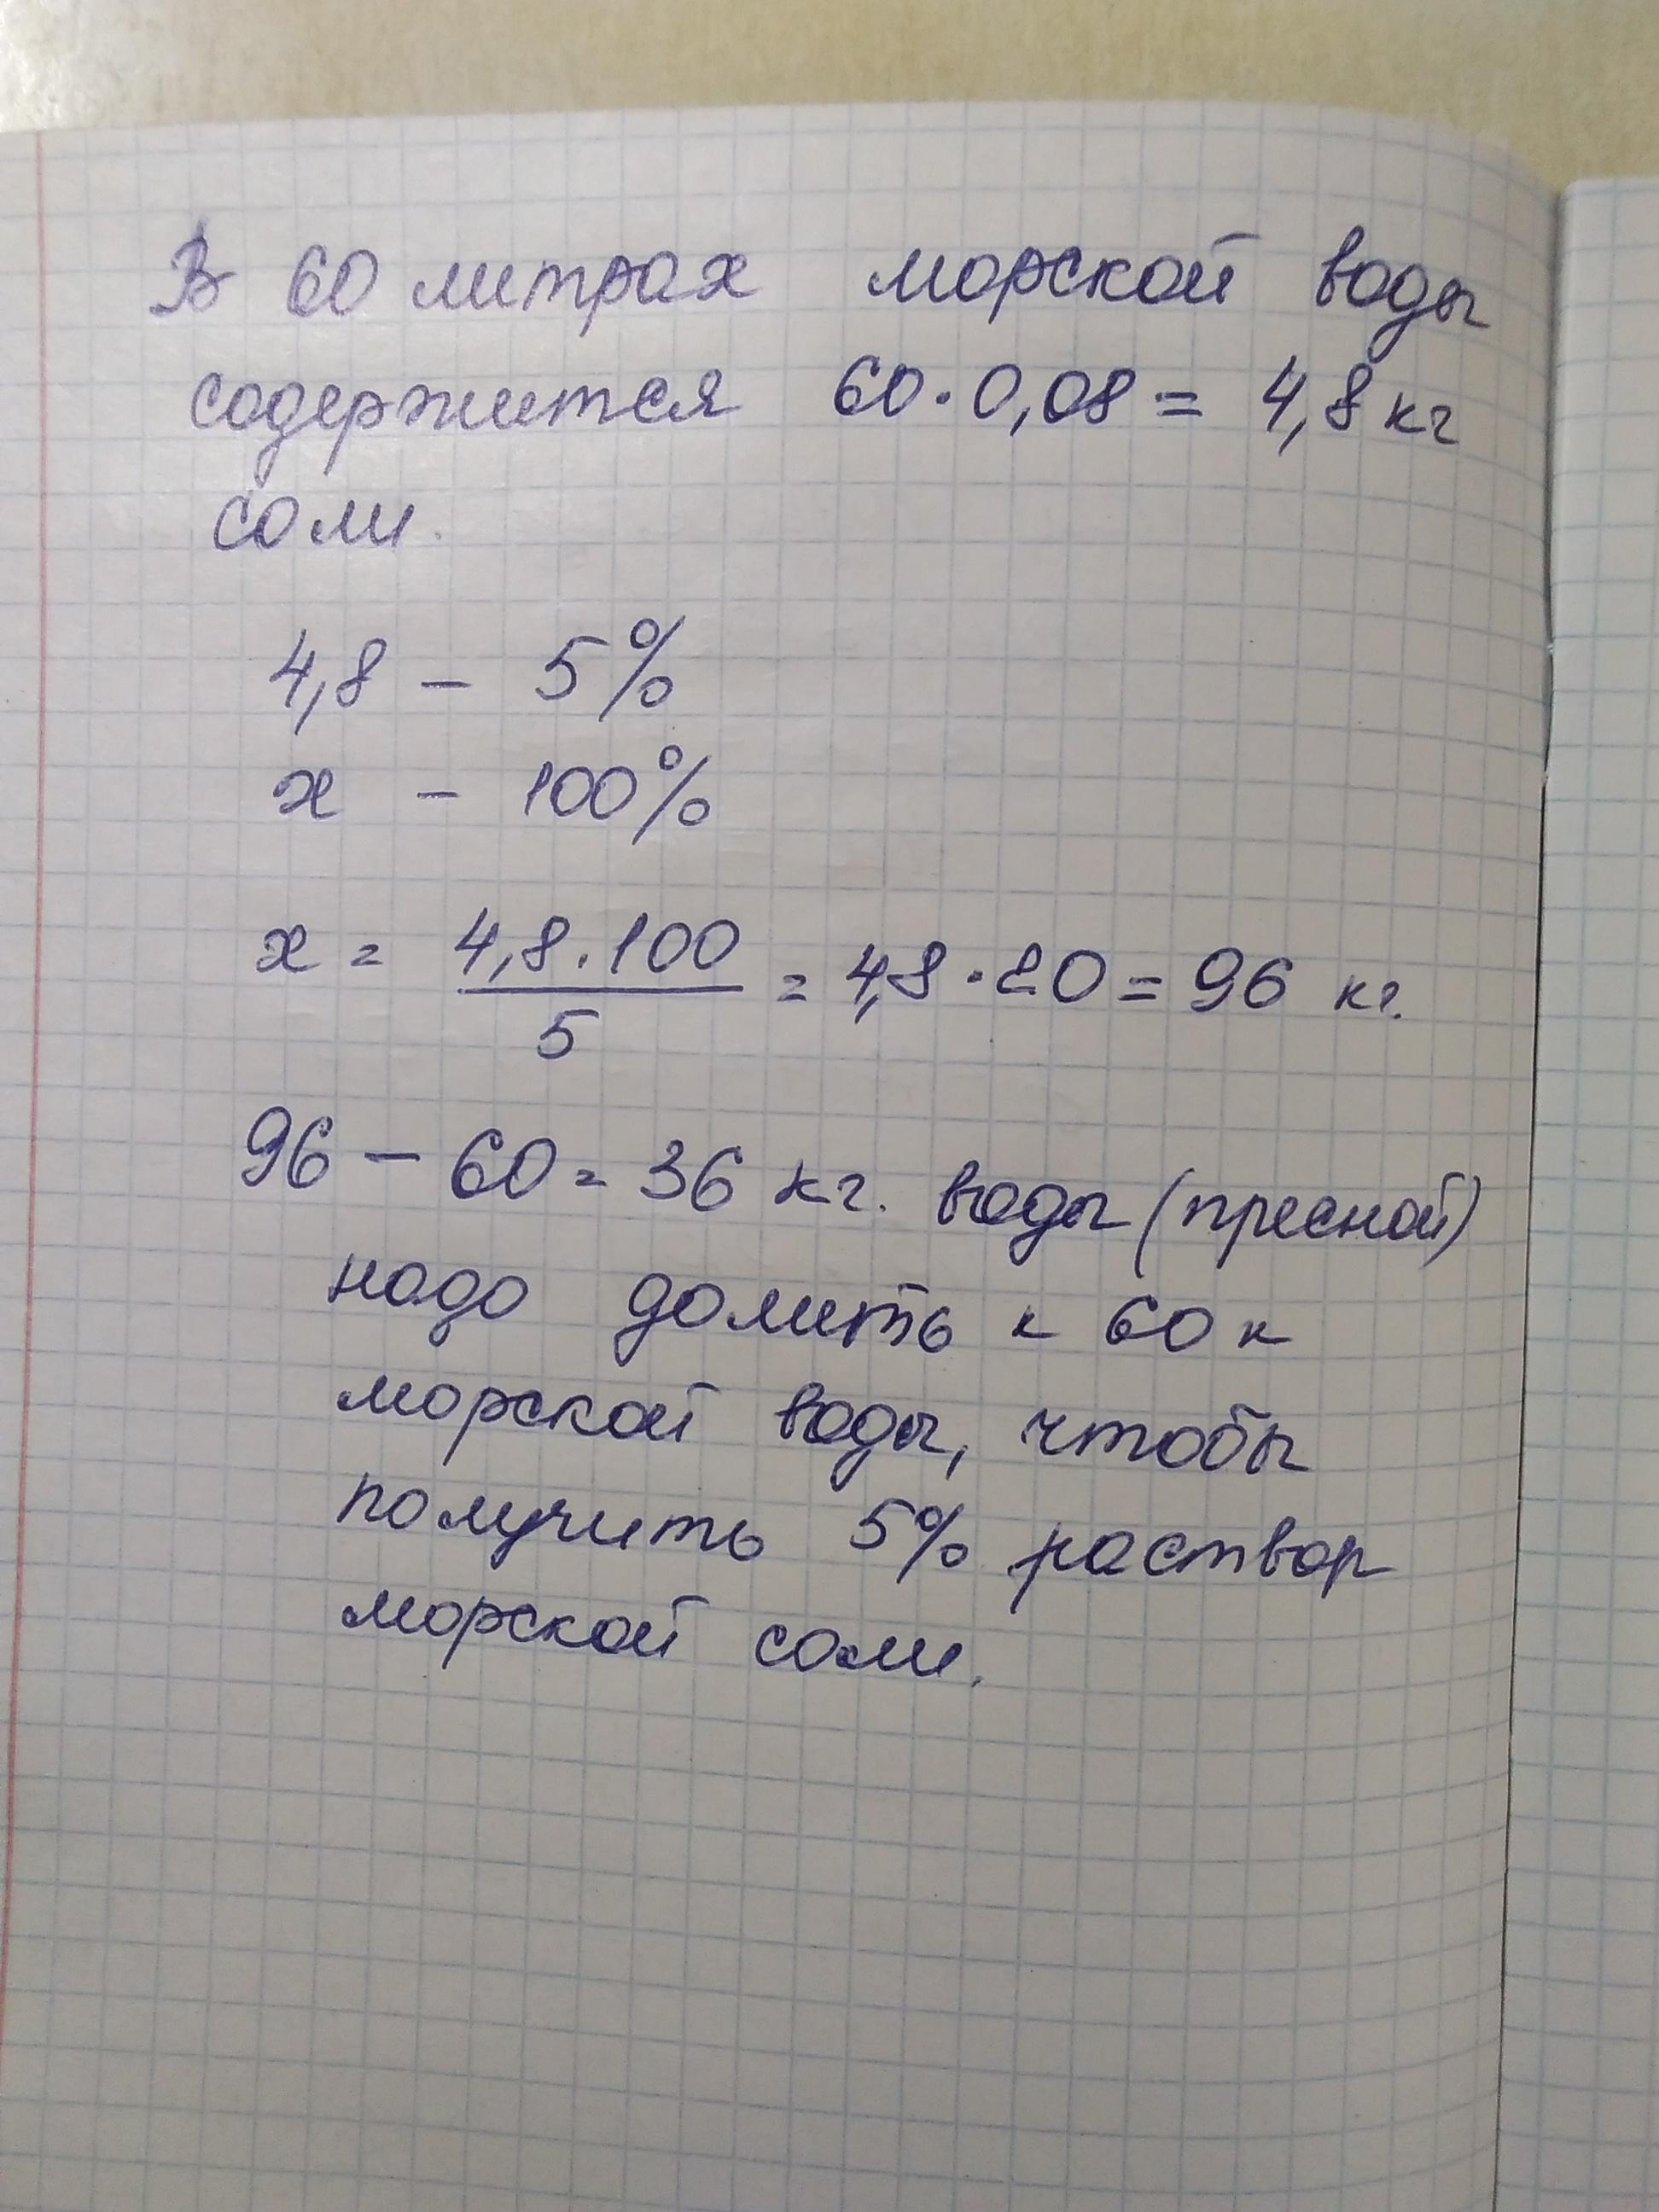 В 60 литрах морской воды
содержится 60·0,08 = 4,8 кг
соли.
4,8 – 5%
х – 100%
х = 4,8·100 / 5 = 4,8·20 = 96 кг.
96 – 60 = 36 кг. воды (пресной)
надо долить к 60 к
морской воды, чтобы
получить 5% раствор
морской соли.